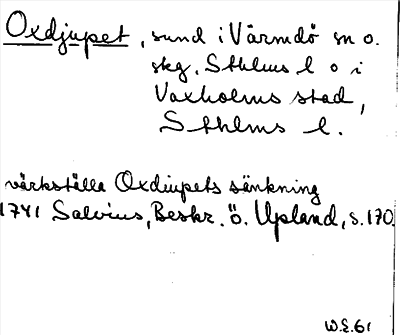 Oxdjupet, sund i Värmdö sn o.
skg, Sthlms l o i
Vaxholms stad,
Sthlms l.
värkställa Oxdiupets sänkning
1741 Salvius, Beskr. ö. Upland, s. 170.
W.E. 61